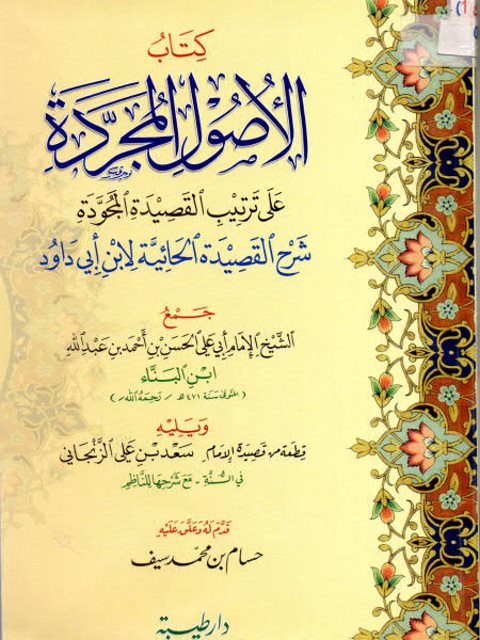 كِتَابُ
الأُصُولِ المُجَرَّدَةِ
عَلَى تَرْتِيبِ القَصِيدَةِ المُجَوَّدَةِ
شَرْحِ القَصِيدَةِ الحَائِيَّةِ لِابْنِ أَبِي دَاوُد
جَمْعُ
الشَّيْخِ الإِمَامِ أَبِي عَلِي الحَسَنِ بْنِ أَحْمَدَ بْنِ عَبْدِ اللهِ
ابْنِ البَنَّاء
(المتوفى سنة ٤٧١ هـ / رَحِمَهُ الله)
وَيَلِيهِ
قطعة من قصيدة الإمام سَعْد بْن عَلي الزَّنْجَاني
في السُّنَّة - مَعَ شَرْحِهَا لِلنَّاظِمِ
قَدَّمَ لَهُ وَعَلَّقَ عَلَيْهِ
حسام بن محمد سيف
دار طيبة